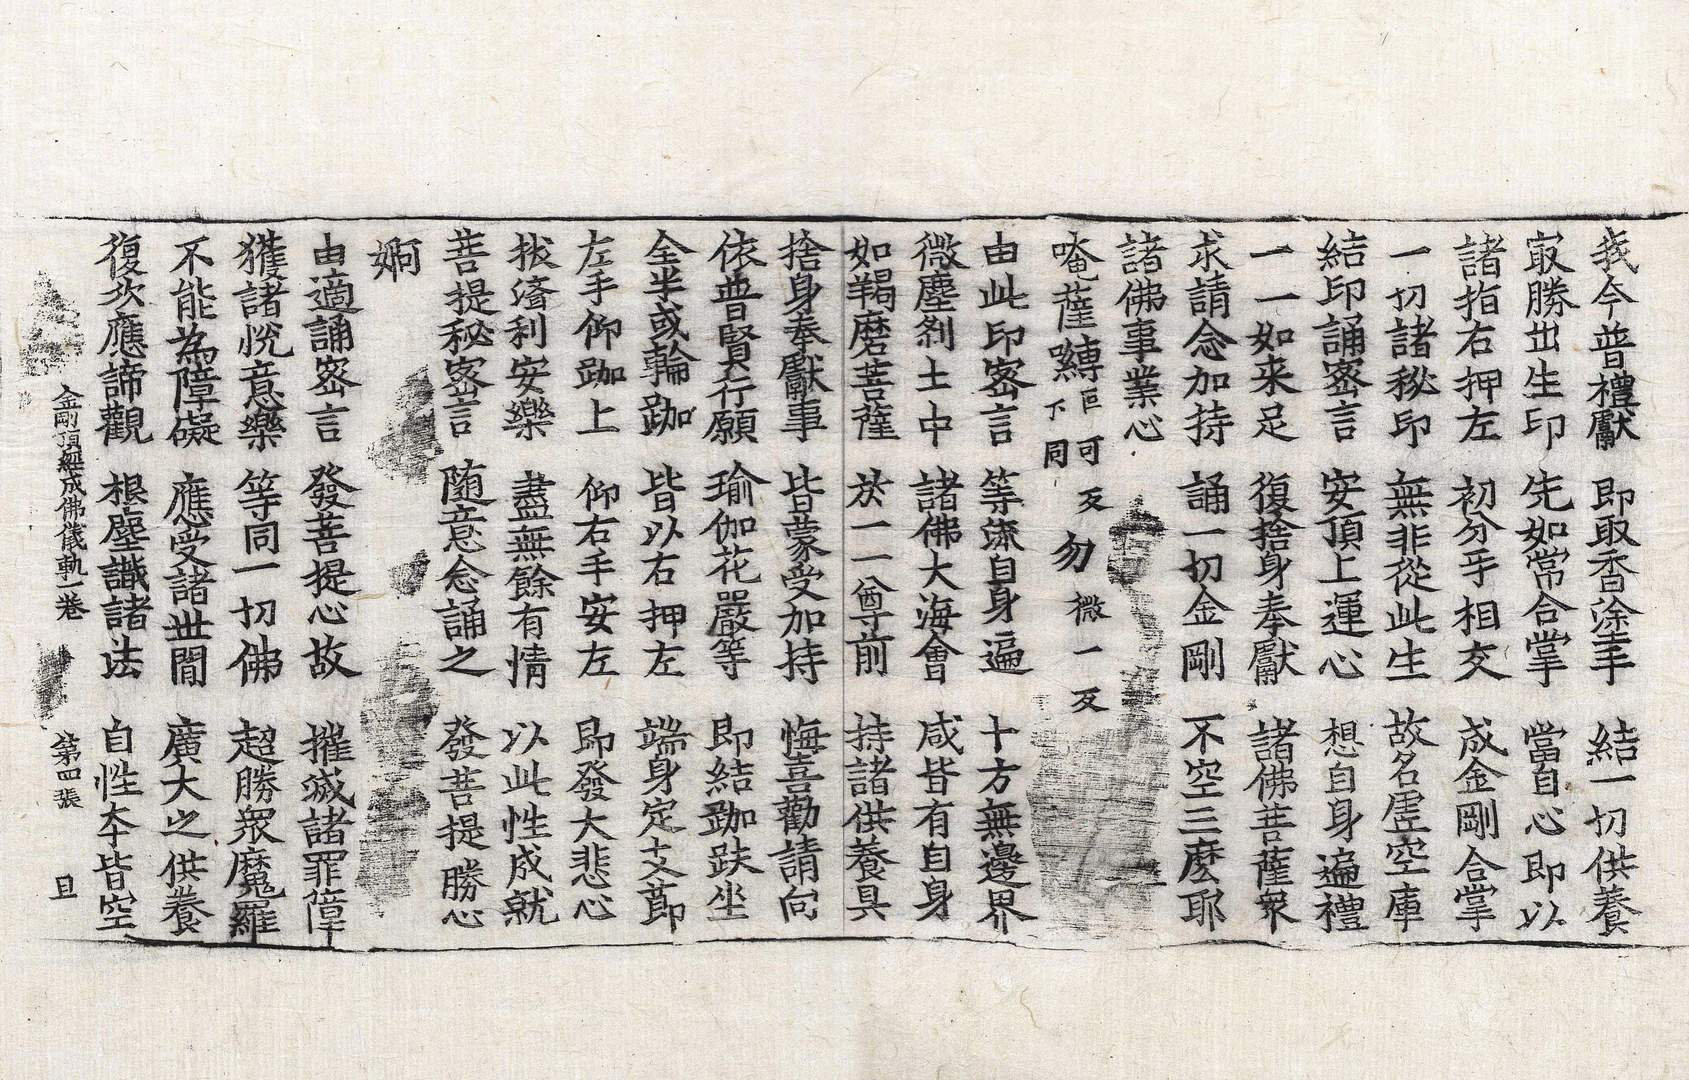 我今普禮獻 即取香塗手 結一切供養
㝡勝出生印 先如常合掌 當自心即以
諸指右押左 初分乎相交 成金剛合掌
一切諸秘印 無非從此生 故名虛空庫
結印誦密言 安頂上運心 想自身遍禮
一一如来足 復捨身奉獻 諸佛菩薩衆
求請念加持 誦一切金剛 不空三麽耶
諸佛事業心
唵薩嚩叵可反下同勿微一反
由此印密言 等流自身遍 十方無邊界
微塵剎土中 諸佛大海會 咸皆有自身
如羯磨菩薩 於一一尊前 持諸供養具
捨身奉獻事 皆蒙受加持 悔喜勸請向
依普賢行願 瑜伽花嚴等 即結跏趺坐
全半或輪跏 皆以右押左 端身定支節
左手仰跏上 仰右手安左 即發大悲心
拔濟利安樂 盡無餘有情 以此性成就
菩提秘密言 随意念誦之 發菩提勝心
婀
由適誦密言 發菩提心故 摧滅諸罪障
獲諸悅意樂 等同一切佛 超勝衆魔羅
不能為障礙 應受諸世間 廣大之供養
復次應諦觀 根塵識諸法 自性夲皆空
金剛頂經成佛儀軌一卷 第四張 旦